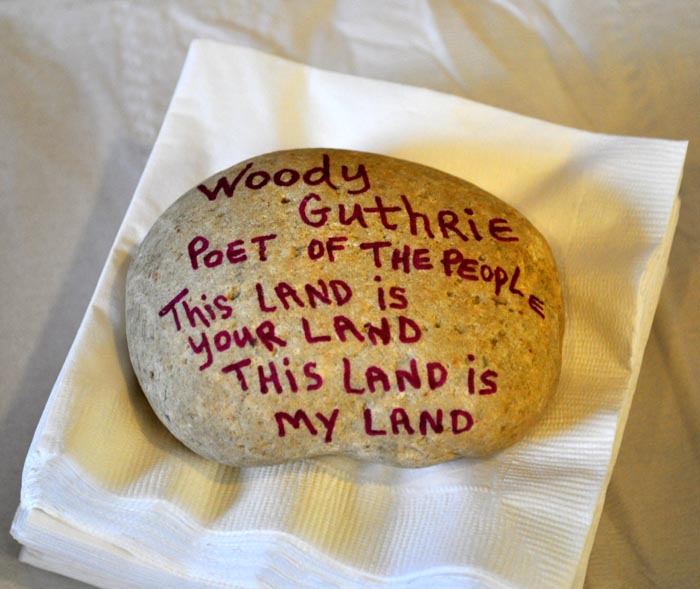 Woody
GuthRiE
POET OF THE PEOPLE
This LAND is
youR LAND
THis LAND is
My LAND